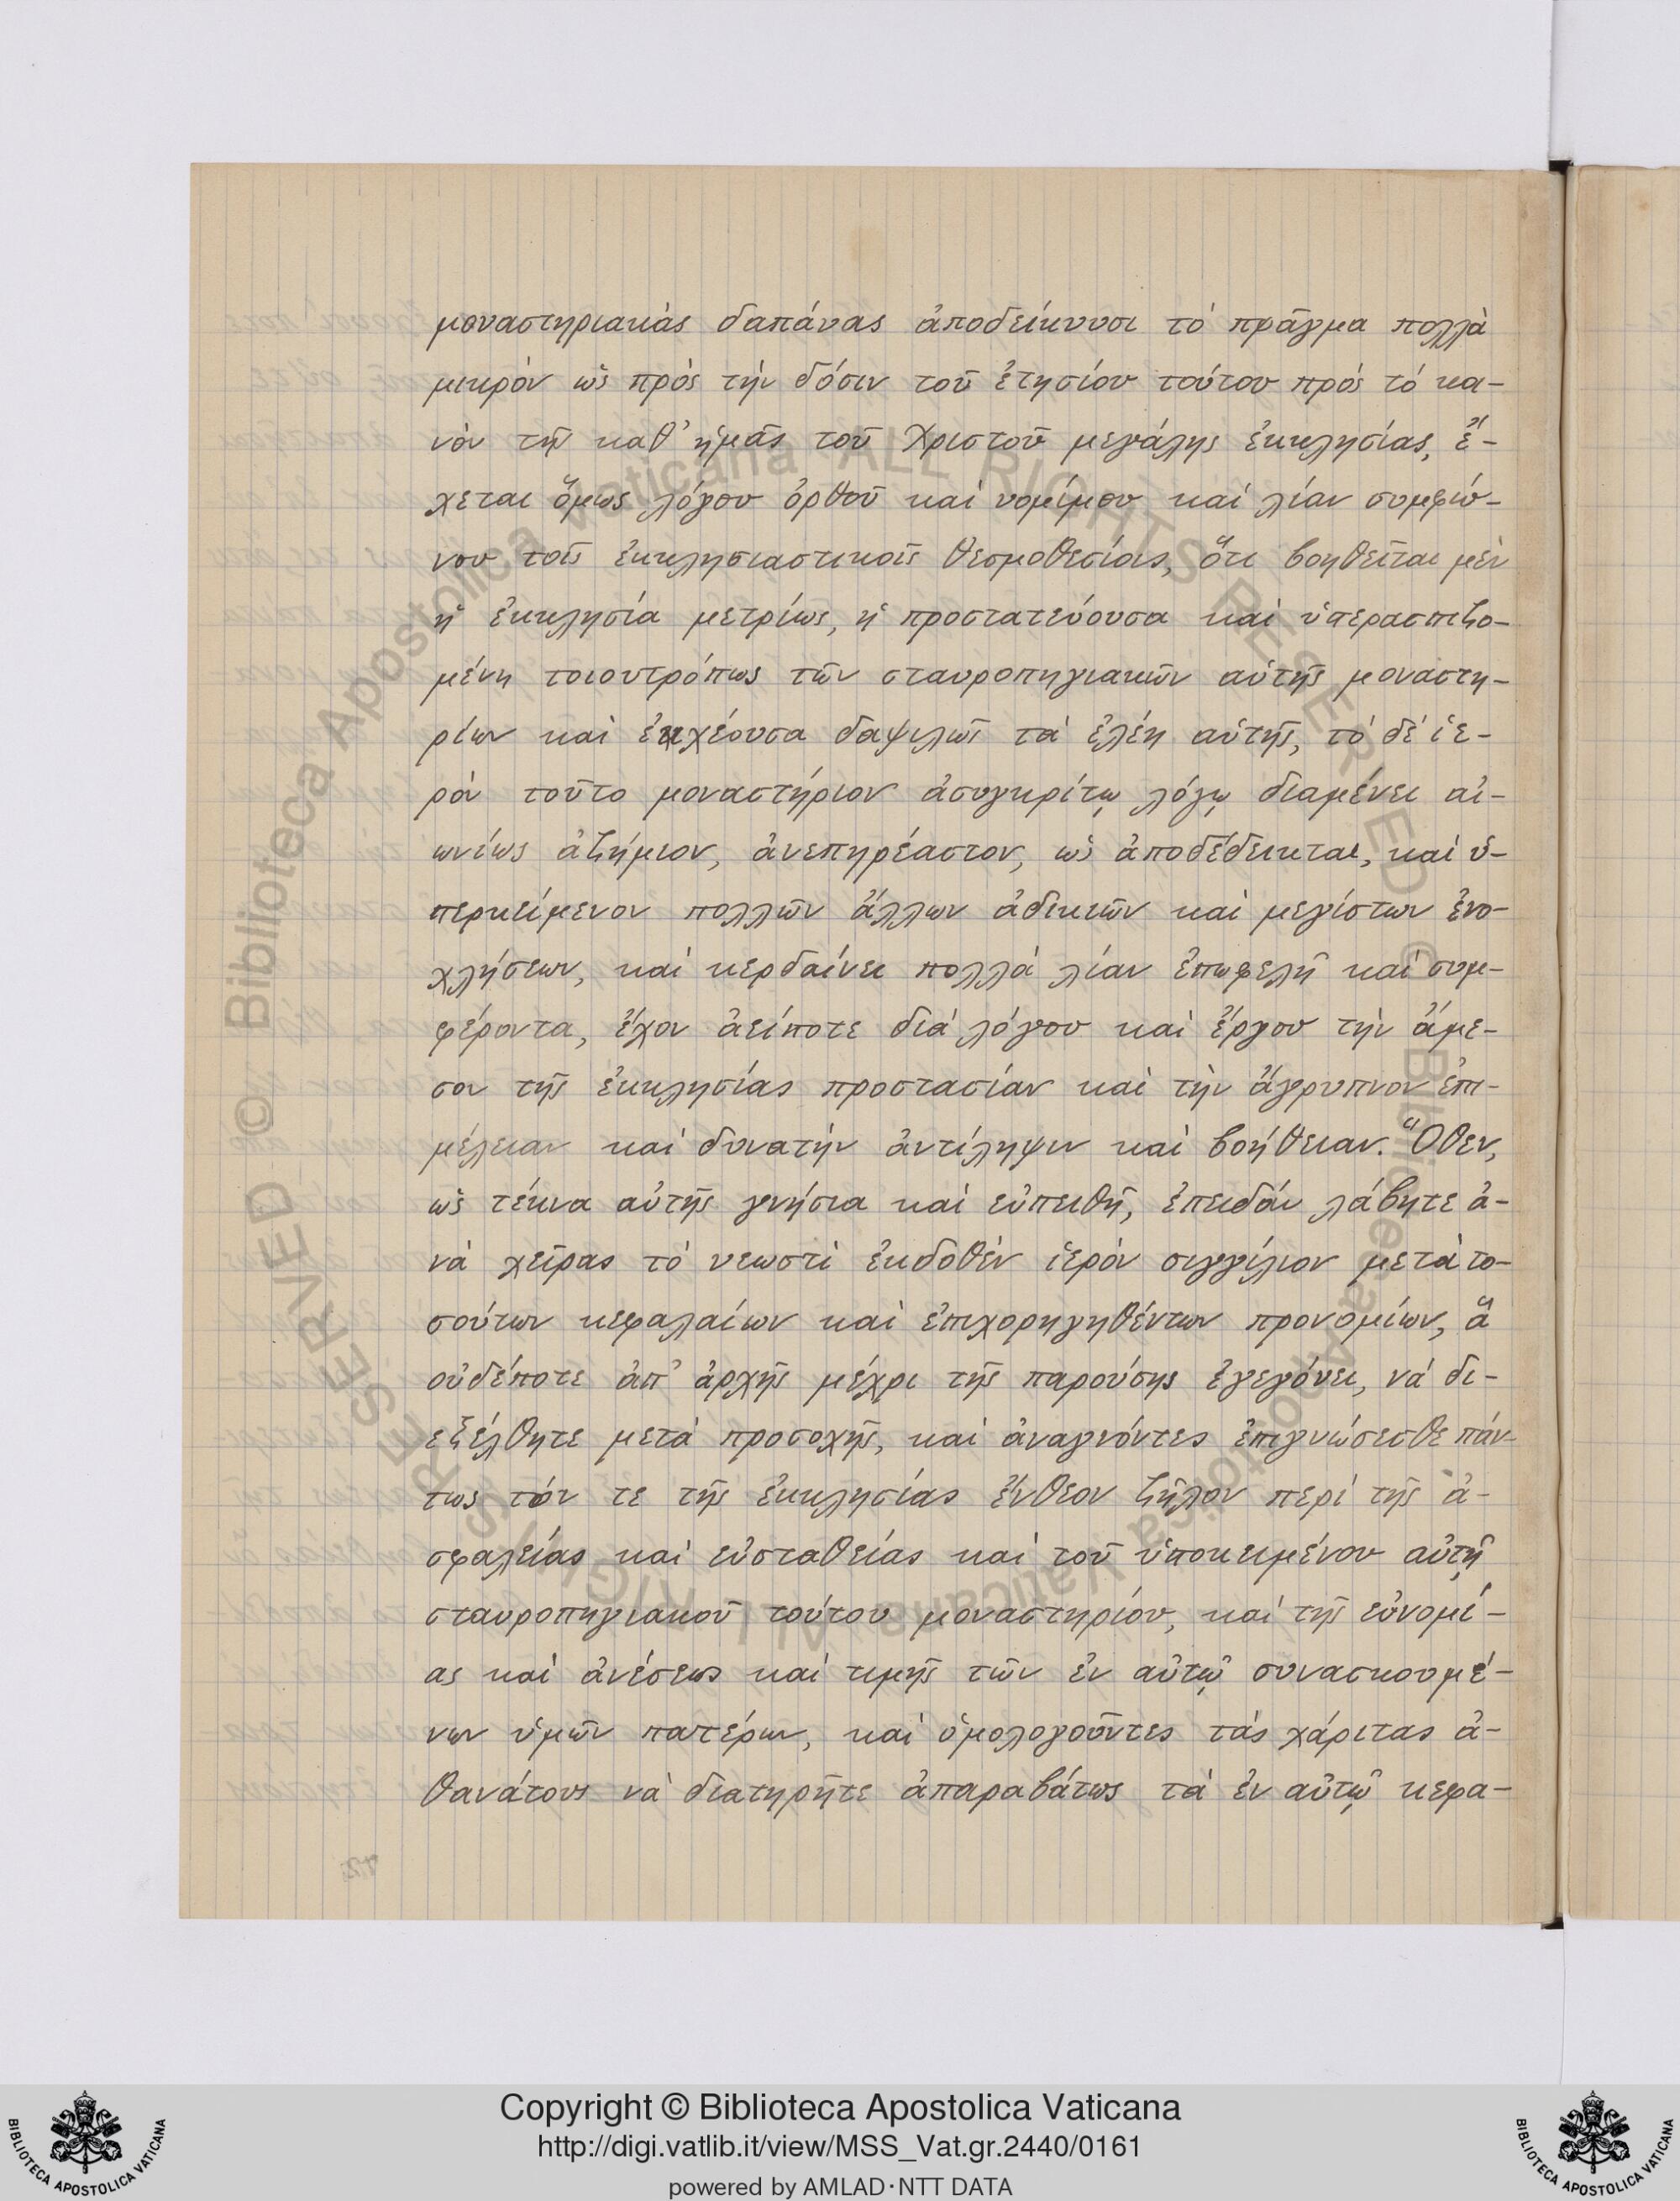 μοναστηριακὰς δαπάνας ἀποδείκνυσι τὸ πρᾶγμα πολλὰ
μικρὸν ὡς πρὸς τὴν δόσιν τοῦ ἐτησίου τούτου πρὸς τὸ κα-
νὸν τῆς καθ' ἡμᾶς τοῦ Χριστοῦ μεγάλης ἐκκλησίας, ἔ-
χεται ὅμως λόγου ὀρθοῦ καὶ νομίμου καὶ λίαν συμφώ-
νου τοῖς ἐκκλησιαστικοῖς θεσμοθεσίοις, ὅτι βοηθεῖται μὲν
ἡ ἐκκλησία μετρίως, ἡ προστατεύουσα καὶ ὑπερασπιζο-
μένη τοιουτρόπως τῶν σταυροπηγιακῶν αὐτῆς μοναστη-
ρίων καὶ ἐκχέουσα δαψιλῶς τὰ ἐλέη αὐτῆς, τὸ δὲ ἱε-
ρὸν τοῦτο μοναστήριον ἀσυγκρίτῳ λόγῳ διαμένει αἰ-
ωνίως ἀζήμιον, ἀνεπηρέαστον, ὡς ἀποδέδεικται, καὶ ὑ-
περκείμενον πολλῶν ἄλλων ἀδικιῶν καὶ μεγίστων ἐνο-
χλήσεων, καὶ κερδαίνει πολλὰ λίαν ἐπωφελῆ καὶ συμ-
φέροντα, ἔχον ἀείποτε διὰ λόγου καὶ ἔργου τὴν ἄμε-
σον τῆς ἐκκλησίας προστασίαν καὶ τὴν ἄγρυπνον ἐπι-
μέλειαν καὶ δυνατὴν ἀντίληψιν καὶ βοήθειαν. Ὅθεν,
ὡς τέκνα αὐτῆς γνήσια καὶ εὐπειθῆ, ἐπειδὰν λάβητε ἀ-
νὰ χεῖρας τὸ νεωστὶ ἐκδοθὲν ἱερὸν σιγγίλιον μετὰ το-
σούτων κεφαλαίων καὶ ἐπιχορηγηθέντων προνομίων, ἃ
οὐδέποτε ἀπ' ἀρχῆς μέχρι τῆς παρούσης ἐγεγόνει, νὰ δι-
εξέλθητε μετὰ προσοχῆς, καὶ ἀναγνόντες ἐπιγνώσεσθε πάν-
τως τόν τε τῆς ἐκκλησίας ἔνθεον ζῆλον περὶ τῆς ἀ-
σφαλείας καὶ εὐσταθείας καὶ τοῦ ὑποκειμένου αὐτῇ
σταυροπηγιακοῦ τούτου μοναστηρίου, καὶ τῆς εὐνομί-
ας καὶ ἀνέσεως καὶ τιμῆς τῶν ἐν αὐτῷ συνασκουμέ-
νων ὑμῶν πατέρων, καὶ ὁμολογοῦντες τὰς χάριτας ἀ-
θανάτους νὰ διατηρῆτε ἀπαραβάτως τὰ ἐν αὐτῷ κεφα-
Copyright © Biblioteca Apostolica Vaticana
http://digi.vatlib.it/view/MSS_Vat.gr.2440/0161
powered by AMLAD·NTT DATA